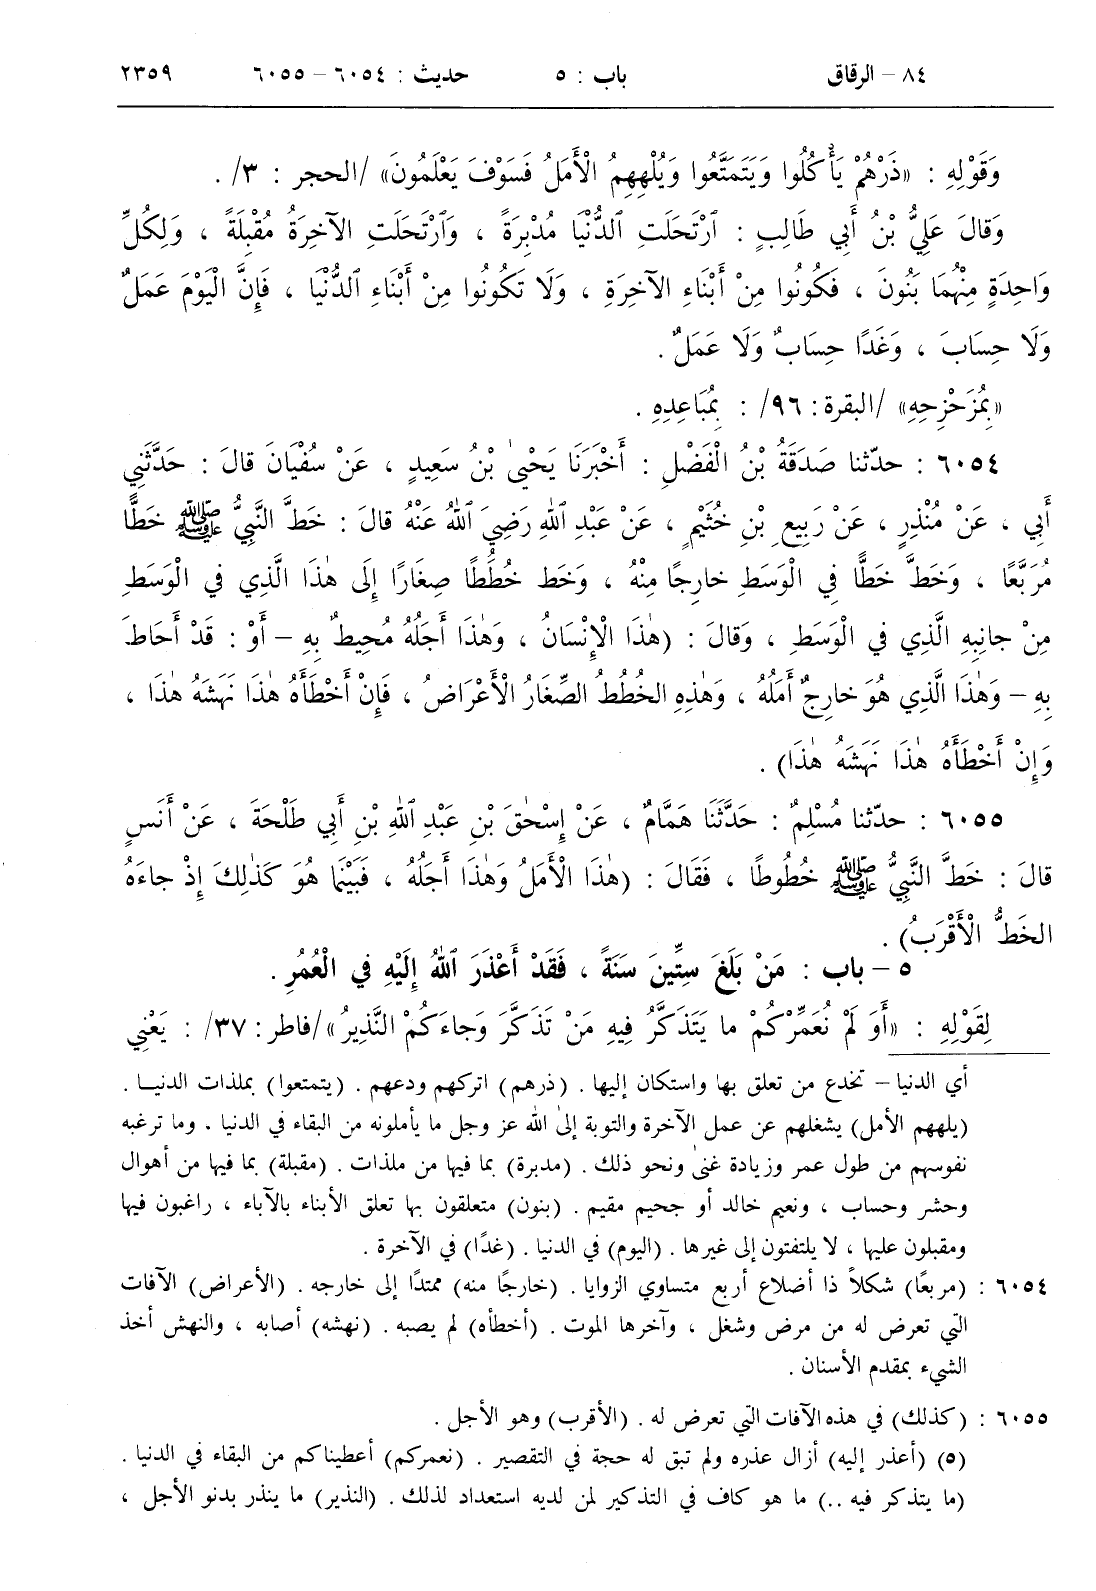 ٨٤ – الرقاق باب : ٥ حديث : ٦٠٥٤ – ٦٠٥٥ ٢٣٥٩
وَقَوْلِهِ : «ذَرْهُمْ يَأْكُلُوا وَيَتَمَتَّعُوا وَيُلْهِهِمُ الْأَمَلُ فَسَوْفَ يَعْلَمُونَ» /الحجر : ٣/ .
وَقَالَ عَلِيُّ بْنُ أَبِي طَالِبٍ : ٱرْتَحَلَتِ ٱلدُّنْيَا مُدْبِرَةً ، وَٱرْتَحَلَتِ الآخِرَةُ مُقْبِلَةً ، وَلِكُلِّ
وَاحِدَةٍ مِنْهُمَا بَنُونَ ، فَكُونُوا مِنْ أَبْنَاءِ الآخِرَةِ ، وَلَا تَكُونُوا مِنْ أَبْنَاءِ ٱلدُّنْيَا ، فَإِنَّ الْيَوْمَ عَمَلٌ
وَلَا حِسَابَ ، وَغَدًا حِسَابٌ وَلَا عَمَلٌ .
«بِمُزَحْزِحِهِ» /البقرة: ٩٦/ : بِمُبَاعِدِهِ .
٦٠٥٤ : حدّثنا صَدَقَةُ بْنُ الْفَضْلِ : أَخْبَرَنَا يَحْيىٰ بْنُ سَعِيدٍ ، عَنْ سُفْيَانَ قالَ : حَدَّثَنِي
أَبِي ، عَنْ مُنْذِرٍ ، عَنْ رَبِيعِ بْنِ خُثَيْمٍ ، عَنْ عَبْدِ ٱللهِ رَضِيَ ٱللهُ عَنْهُ قالَ : خَطَّ النَّبِيُّ ﷺ خَطًّا
مُرَبَّعًا ، وَخَطَّ خَطًّا فِي الْوَسَطِ خارِجًا مِنْهُ ، وَخَط خُطُطًا صِغَارًا إِلَى هٰذَا الَّذِي فِي الْوَسَطِ
مِنْ جانِبِهِ الَّذِي فِي الْوَسَطِ ، وَقالَ : (هٰذَا الْإِنْسَانُ ، وَهٰذَا أَجَلُهُ مُحِيطٌ بِهِ – أَوْ : قَدْ أَحَاطَ
بِهِ – وَهٰذَا الَّذِي هُوَ خارِجٌ أَمَلُهُ ، وَهٰذِهِ الخُطُطُ الصِّغَارُ الْأَعْرَاضُ ، فَإِنْ أَخْطَأَهُ هٰذَا نَهَشَهُ هٰذَا ،
وَإِنْ أَخْطَأَهُ هٰذَا نَهَشَهُ هٰذَا) .
٦٠٥٥ : حدّثنا مُسْلِمٌ : حَدَّثَنَا هَمَّامٌ ، عَنْ إِسْحٰقَ بْنِ عَبْدِ ٱللهِ بْنِ أَبِي طَلْحَةَ ، عَنْ أَنَسٍ
قالَ : خَطَّ النَّبِيُّ ﷺ خُطُوطًا ، فَقَالَ : (هٰذَا الْأَمَلُ وَهٰذَا أَجَلُهُ ، فَبَيْنَمَا هُوَ كَذٰلِكَ إِذْ جاءَهُ
الخَطُّ الْأَقْرَبُ) .
٥ – باب : مَنْ بَلَغَ سِتِّينَ سَنَةً ، فَقَدْ أَعْذَرَ ٱللهُ إِلَيْهِ فِي الْعُمُرِ .
لِقَوْلِهِ : «أَوَ لَمْ نُعَمِّرْكُمْ ما يَتَذَكَّرُ فِيهِ مَنْ تَذَكَّرَ وَجاءَكُمُ النَّذِيرُ»/فاطر: ٣٧/ : يَعْنِي
أي الدنيا – تخدع من تعلق بها واستكان إليها . (ذرهم) اتركهم ودعهم . (يتمتعوا) بملذات الدنيا .
(يلههم الأمل) يشغلهم عن عمل الآخرة والتوبة إلىٰ الله عز وجل ما يأملونه من البقاء في الدنيا ، وما ترغبه
نفوسهم من طول عمر وزيادة غنىٰ ونحو ذلك . (مدبرة) بما فيها من ملذات . (مقبلة) بما فيها من أهوال
وحشر وحساب ، ونعيم خالد أو جحيم مقيم . (بنون) متعلقون بها تعلق الأبناء بالآباء ، راغبون فيها
ومقبلون عليها ، لا يلتفتون إلى غيرها . (اليوم) في الدنيا . (غدًا) في الآخرة .
٦٠٥٤ : (مربعًا) شكلاً ذا أضلاع أربع متساوي الزوايا . (خارجًا منه) ممتدًا إلى خارجه . (الأعراض) الآفات
التي تعرض له من مرض وشغل ، وآخرها الموت . (أخطأه) لم يصبه . (نهشه) أصابه ، والنهش أخذ
الشيء بمقدم الأسنان .
٦٠٥٥ : (كذلك) في هذه الآفات التي تعرض له . (الأقرب) وهو الأجل .
(٥) (أعذر إليه) أزال عذره ولم تبق له حجة في التقصير . (نعمركم) أعطيناكم من البقاء في الدنيا .
(ما يتذكر فيه ..) ما هو كاف في التذكير لمن لديه استعداد لذلك . (النذير) ما ينذر بدنو الأجل ،